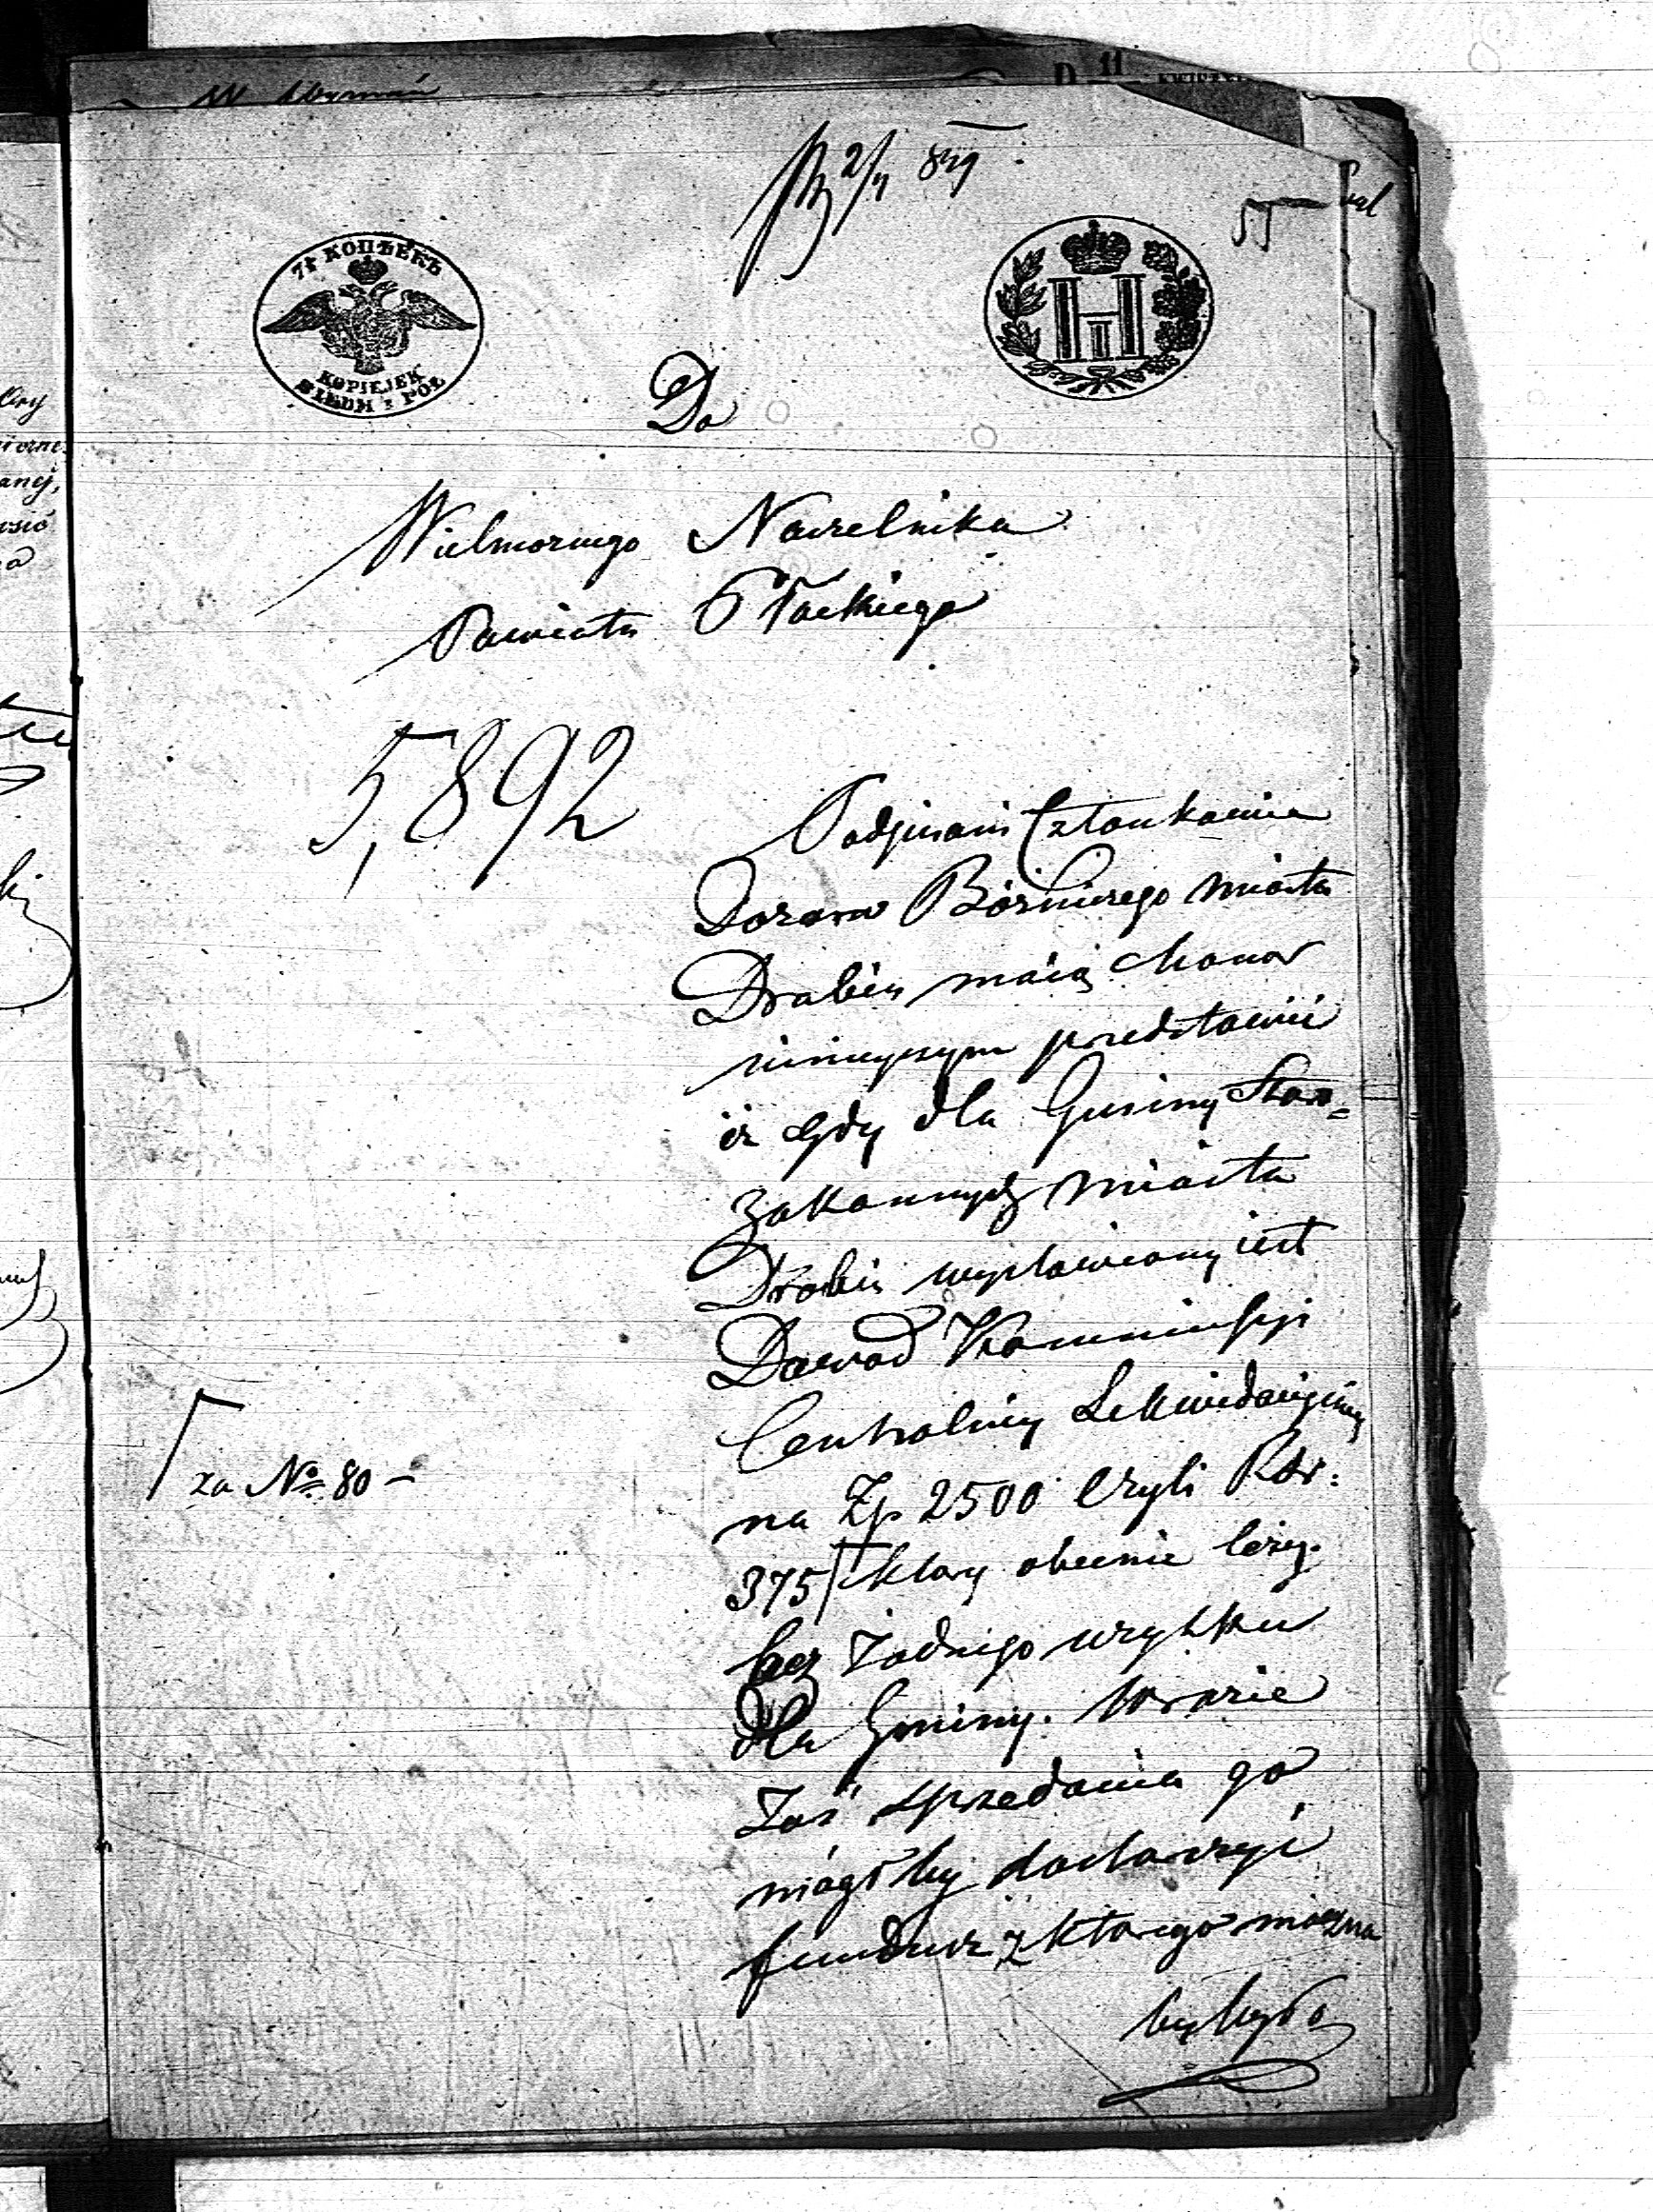 2/4 849
55
7½ КОПѢЕКЪ
KOPIEJEK
SIEDM I PÓŁ
Do
Wielmożnego Naczelnika
Powiatu Płockiego
5,892
Podpisani Członkowie
Dozoru Bóżniczego miasta
Drobin maią honor
ninieyszym przedstawić
iż gdy dla Gminy Staro=
zakonnych miasta
Drobin wystawiony iest
Dowod Kommissyi
Centralney Likwidacyiney
na Zp 2500 czyli Rsr:
375 który obecnie leży
za No 80 –
bez żadnego użytku
dla Gminy. W razie
zaś sprzedania go
mógł by dostarczyć
fundusz z którego można
by było